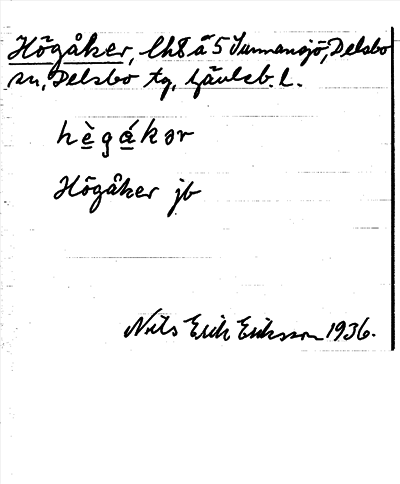 Högåker, lht å 5 Sunnansjö, Delsbo
sn, Delsbo tg, Gävleb. l.
hègákər
Högåker jb
Nils Erik Eriksson 1936.